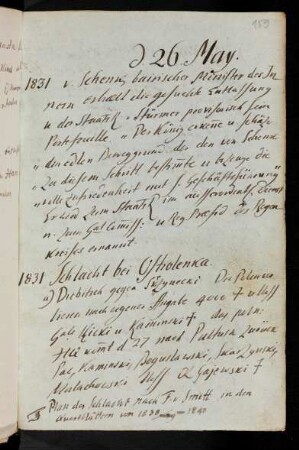 159
d 26 May.
1831 v. Schenk, bairischer Minister des In-
nern erhält die gesuchte Entlassung
u der Staatsr v. Stürmer provisorisch sein
Portefeuille. „Der König erkenne u schäze
„den edlen Beweggrund, der den von Schenk
„zu diesem Schritt bestimte u bezeuge die
„volle Zufriedenheit mit s. Geschäftsführung"
Er wird zum Staatsr im ausserordentl Dienst
u. zum Gral Comiss: u Reg. Präsid des Regen
kreises ernannt.
1831 Schlacht bei Ostrolenka
a) Diebitsch gegen Skrzynecki Die Polen ver-
lieren nach eigener Angabe 4000 +
Gale Kicki u Kaminski + das poln:
kömt d 27 nach Pultusk zurück
Pac, Kaminski, Boguslawski,
Malachowski Gajewski +
Plan der Schlacht nach F. v Smitt in den